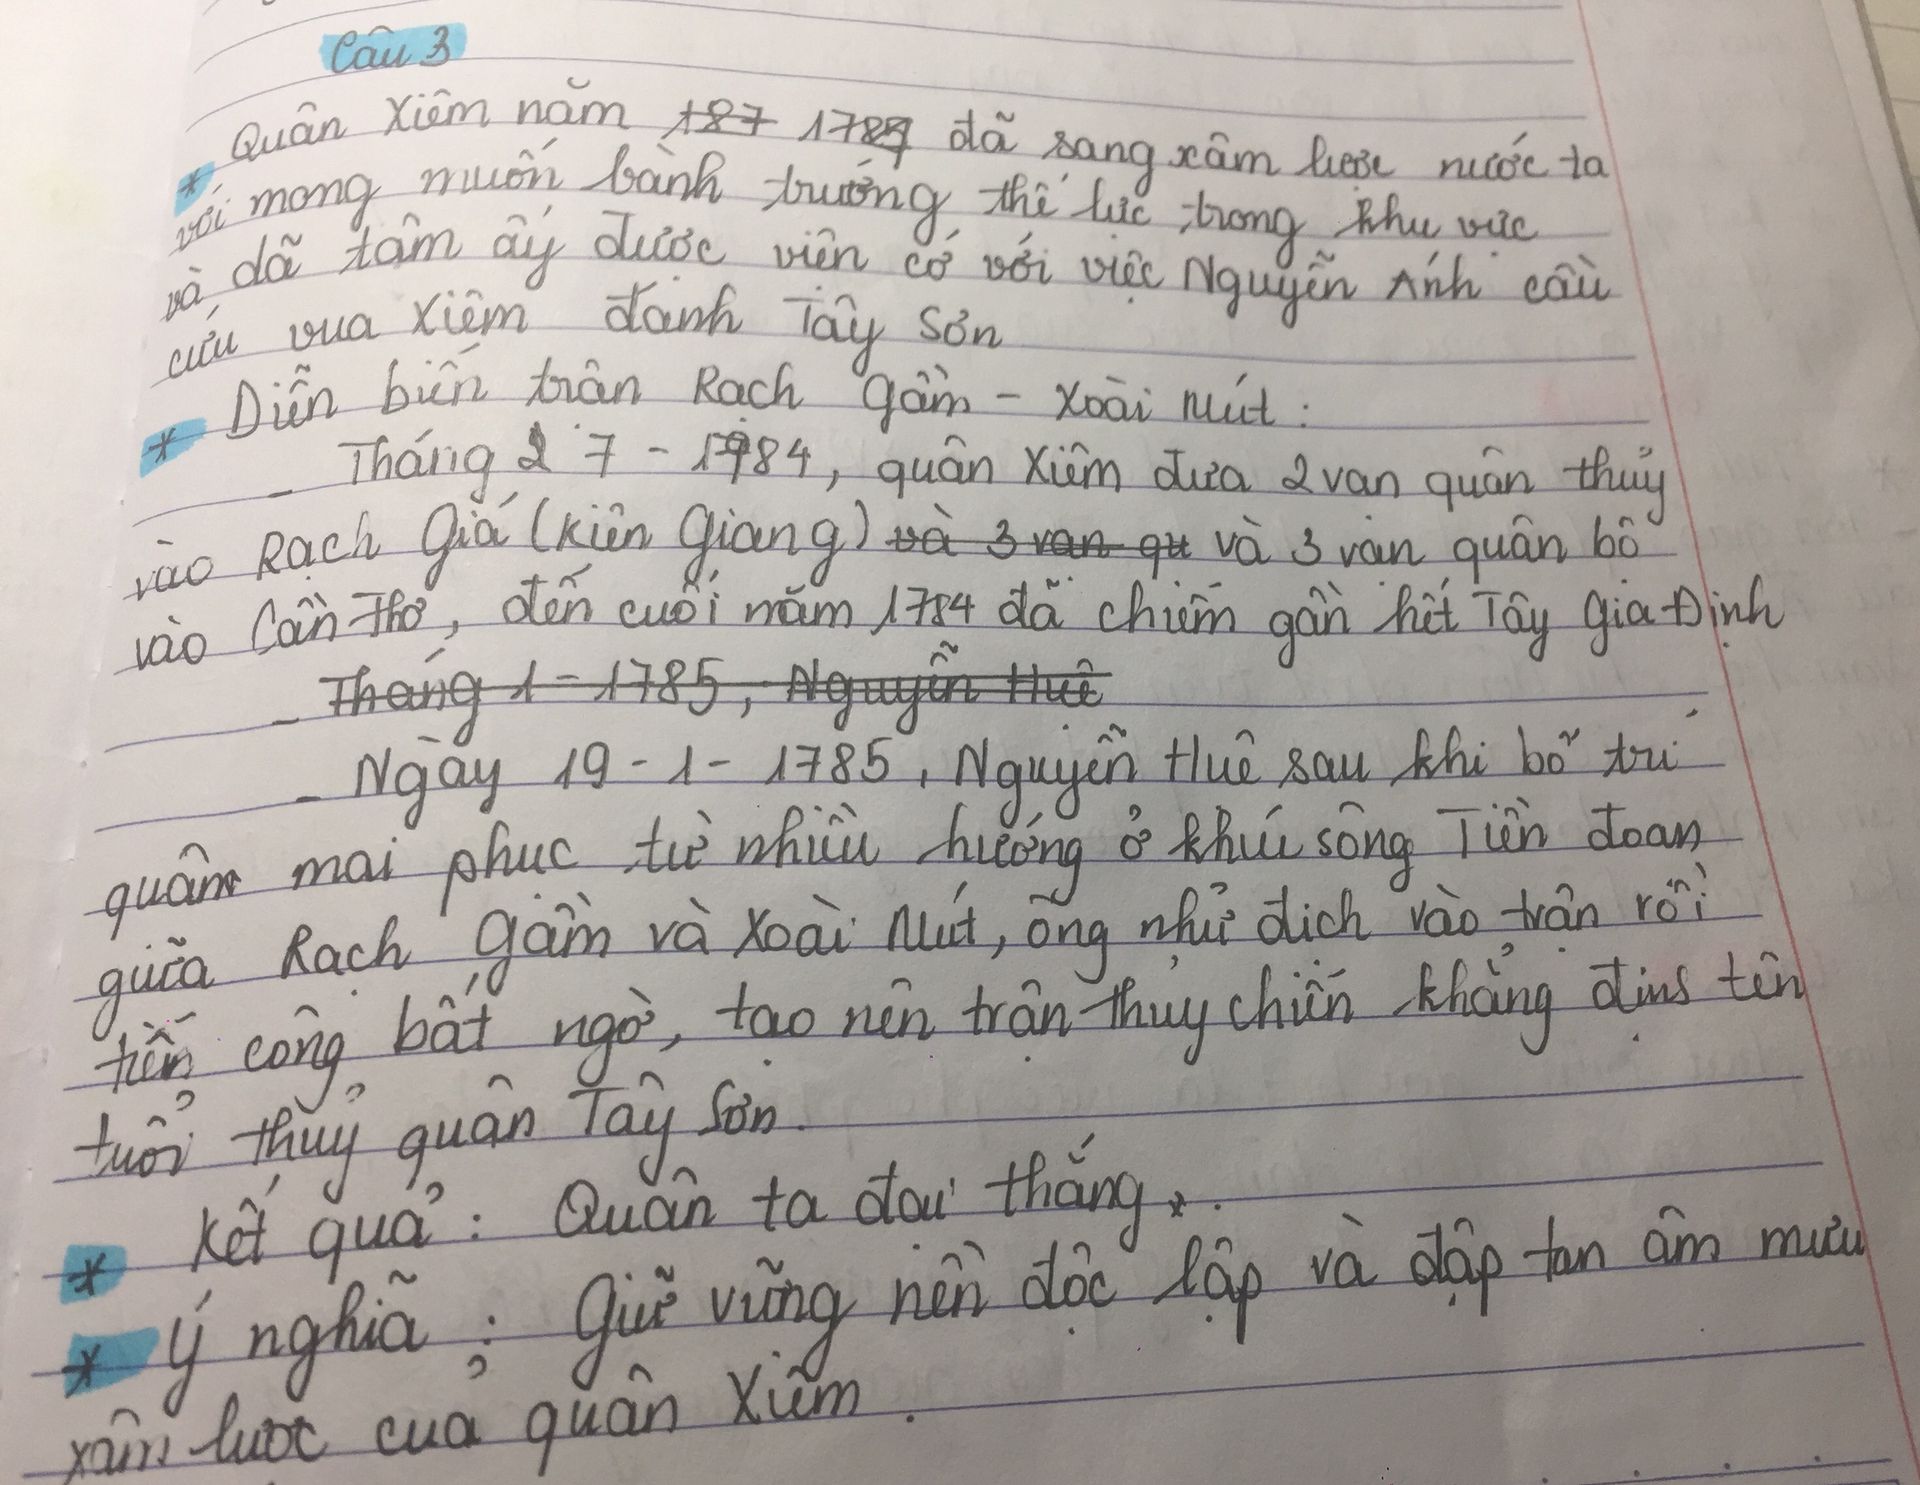 Câu 3
* Quân Xiêm năm 187 1784 đã sang xâm lược nước ta
với mong muốn bành trướng thế lực trong khu vực
và dã tâm ấy được viên cớ với việc Nguyễn Ánh cầu
cứu vua Xiêm đánh Tây Sơn
* Diễn biến trận Rạch Gầm - Xoài Mút :
- Tháng 7 - 1784, quân Xiêm đưa 2 vạn quân thủy
vào Rạch Giá (Kiên Giang) và 3 vạn qu và 3 vạn quân bộ
vào Cần Thơ, đến cuối năm 1784 đã chiếm gần hết Tây Gia Định
- Tháng 1 - 1785, Nguyễn Huệ
- Ngày 19 - 1 - 1785, Nguyễn Huệ sau khi bố trí
quân mai phục từ nhiều hướng ở khúc sông Tiền đoạn
giữa Rạch Gầm và Xoài Mút, ông nhử địch vào trận rồi
tiến công bất ngờ, tạo nên trận thủy chiến khẳng định tên
tuổi thủy quân Tây Sơn.
* Kết quả : Quân ta đại thắng.
* Ý nghĩa : Giữ vững nền độc lập và đập tan âm mưu
xâm lược của quân Xiêm.